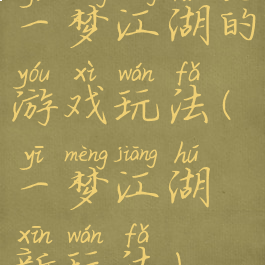 一梦江湖的
yóu xì wán fǎ
游戏玩法(
yī mèng jiāng hú
一梦江湖
xīn wán fǎ
新玩法)